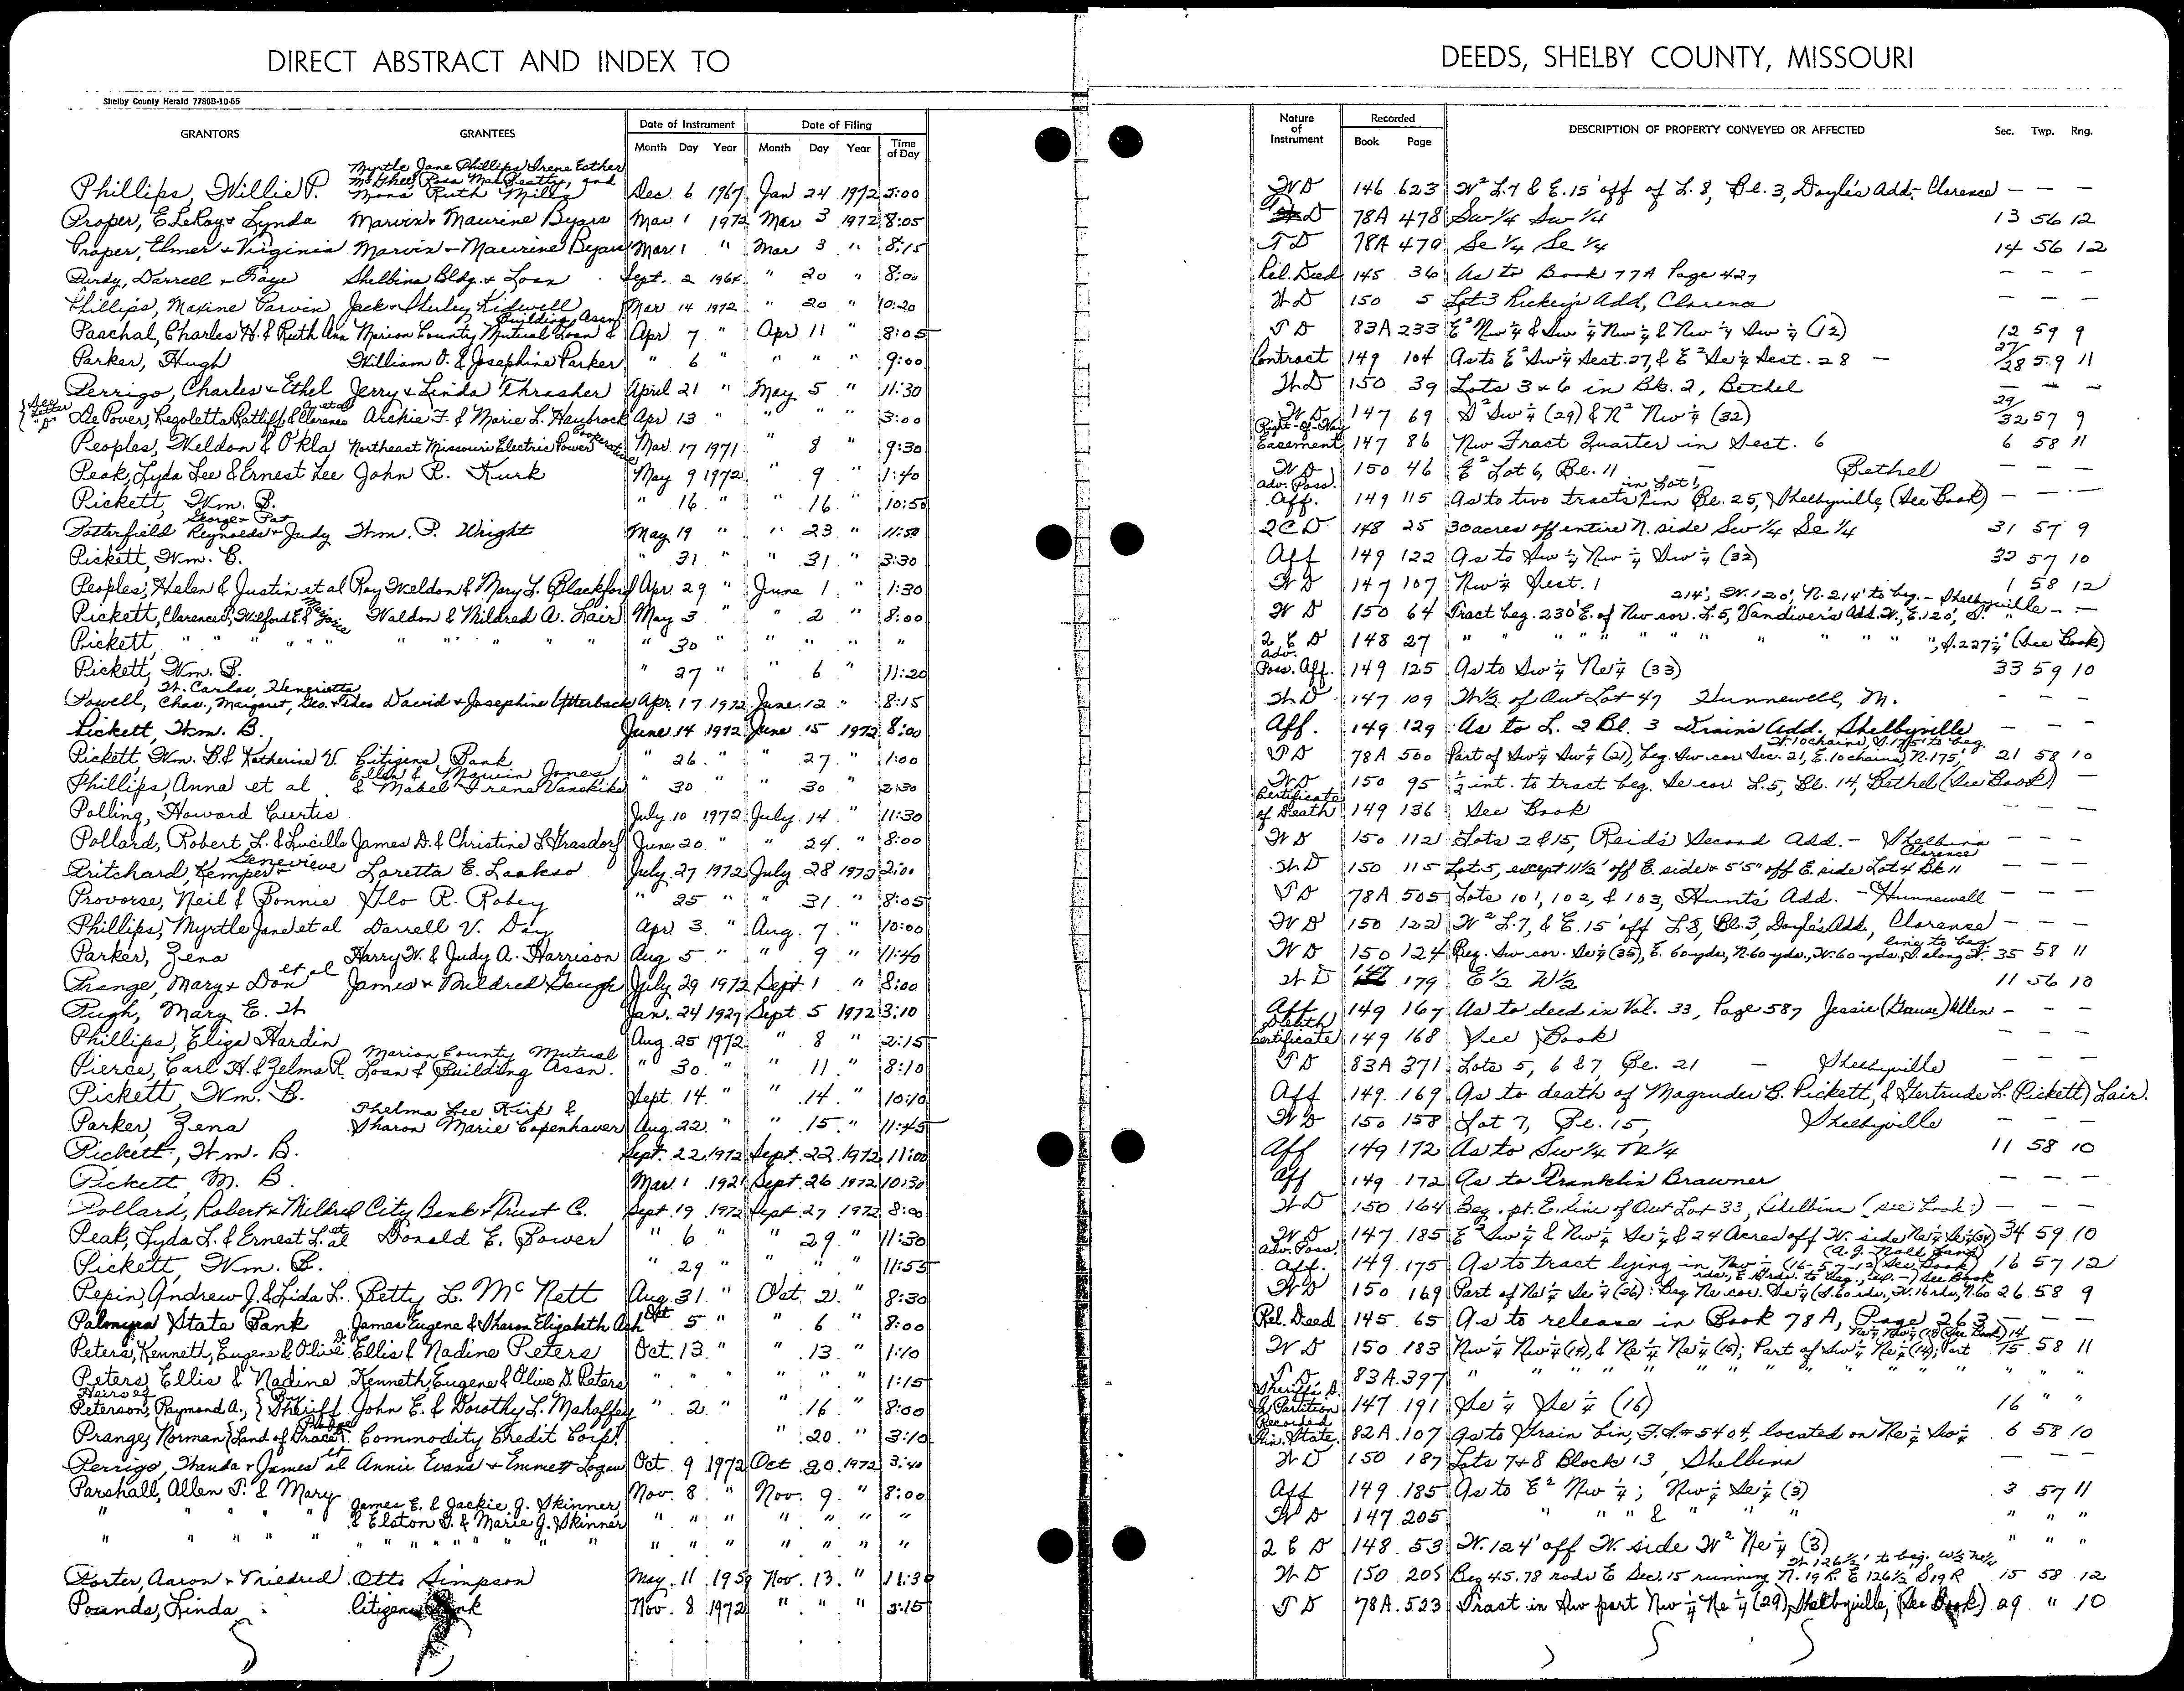 DIRECT ABSTRACT AND INDEX TO DEEDS, SHELBY COUNTY, MISSOURI
Shelby County Herald 7780B-10-65
GRANTORS GRANTEES Date of Instrument Month Day Year Date of Filing Month Day Year Time of Day Nature of Instrument Recorded Book Page DESCRIPTION OF PROPERTY CONVEYED OR AFFECTED Sec. Twp. Rng.
Myrtle Jane Phillips, Irene Esther
McGhee, Rosa Mae Beatty, and
Phillips, Willie P. Mona Ruth Mills Dec. 6 1967 Jan 24 1972 2:00 WD 146 623 W² L.7 & E.15' off of L. 8, Bl. 3, Doyle's Add.- Clarence — — —
Proper, E. LeRoy & Lynda Marvin & Maurine Byars Mar 1 1972 Mar 3 1972 8:05 TD 78A 478 Sw 1/4 Sw 1/4 13 56 12
Proper, Elmer + Virginia Marvin + Maurine Byars Mar 1 " Mar 3 " 8:15 TD 78A 479 Se 1/4 Se 1/4 14 56 12
Purdy, Darrell + Faye Shelbina Bldg. & Loan Sept. 2 1964 " 20 " 8:00 Rel. Deed 145 36 As to Book 77A Page 427 — — —
Phillips, Maxine Parvin Jack & Shirley Kidwell Mar 14 1972 " 20 " 10:20 WD 150 5 Lot 3 Rickey's Add, Clarence — — —
Paschal, Charles H. & Ruth Ann Marion County Mutual Loan & Building Assn. Apr 7 " Apr 11 " 8:05 TD 83A 233 E² Nw ¼ & Sw ¼ Nw ¼ & Nw ¼ Sw ¼ (12) 12 59 9
Parker, Hugh William O. & Josephine Parker " 6 " " " " 9:00 Contract 149 104 As to E² Sw ¼ Sect. 27, & E² Se ¼ Sect. 28 — 27/28 59 11
Perrigo, Charles & Ethel Jerry & Linda Thrasher April 21 " May 5 " 11:30 WD 150 39 Lots 3 & 6 in Bk. 2, Bethel — — —
{See Letter "D"} De Pover, Regoletta Ratliff & Clarence A. et al Archie F. & Marie L. Haybrock Apr 13 " " " " 3:00 WD 147 69 S² Sw ¼ (29) & N² Nw ¼ (32) 29/32 57 9
Peoples, Weldon & Okla Northeast Missouri Electric Power Cooperative Mar 17 1971 " 8 " 9:30 Right-of-Way Easement 147 86 Nw Fract Quarter in Sect. 6 6 58 11
Peak, Lyda Lee & Ernest Lee John R. Kurk May 9 1972 " 9 " 1:40 WD 150 46 E² Lot 6, Bl. 11 — Bethel — — —
Pickett, Wm. B. " 16 " " 16 " 10:50 Adv. Poss. Aff. 149 115 As to two tracts in Lot 1, in Bl. 25, Shelbyville, (See Book) — — —
Potterfield George & Pat Reynolds & Judy Wm. P. Wright May 19 " " 23 " 11:50 QCD 148 25 30 acres off entire N. side Sw 1/4 Se 1/4 31 57 9
Pickett, Wm. B. " 31 " " 31 " 3:30 Aff 149 122 As to Sw ¼ Nw ¼ Sw ¼ (32) 32 57 10
Peoples, Helen & Justin et al Roy Weldon & Mary L. Blackford Apr 29 " June 1 " 1:30 WD 147 107 Nw ¼ Sect. 1 1 58 12
Pickett, Clarence P., Wilford E. & Marjorie Waldon & Mildred A. Lair May 3 " " 2 " 8:00 WD 150 64 Tract beg. 230' E. of Nw cor. L. 5, Vandiver's Add. W., E. 120', S. 214', W. 120', N. 214' to beg. - Shelbyville — —
Pickett, " " " " " " " " 30 " " " " " QCD 148 27 " " " " " " ", S. 227½' (See Book)
Pickett, Wm. B. " 27 " " 6 " 11:20 Adv. Poss. Aff. 149 125 As to Sw ¼ Ne ¼ (33) 33 59 10
Powell, W. Carlos, Henrietta, Chas., Margaret, Geo. & Theo David & Josephine Utterback Apr. 17 1972 June 12 " 8:15 WD 147 109 W ½ of Out Lot 47 Hunnewell, M. — — —
Pickett, Wm. B. June 14 1972 June 15 1972 8:00 Aff. 149 129 As to L. 2 Bl. 3 Drain's Add. Shelbyville — — —
Pickett Wm. B. & Katherine V. Citizens Bank " 26 " " 27 " 1:00 TD 78A 500 Part of Sw ¼ Sw ¼ (21), beg. Sw cor Sec. 21, E. 10 chains, N. 175', W. 10 chains, S. 175' to beg. 21 58 10
Phillips, Anna et al Ellen & Marvin Jones & Mabel Irene Vanskike " 30 " " 30 " 2:30 WD 150 95 ½ int. to tract beg. Se cor L. 5, Bl. 14, Bethel (See Book) —
Polling, Howard Curtis July 10 1972 July 14 " 11:30 Certificate of Death 149 136 See Book — — —
Pollard, Robert L. & Lucille James D. & Christine L. Grasdorf June 20 " " 24 " 8:00 WD 150 112 Lots 2 & 15, Reid's Second Add. - Shelbina — — —
Pritchard, Kemper & Genevieve Loretta E. Laakso July 27 1972 July 28 1972 2:00 WD 150 115 Lot 5, except 11½' off E. side & 5'5" off E. side Lot 4 Bk 11 Clarence — — —
Provorse, Neil & Bonnie Flo R. Robey " 25 " " 31 " 8:05 TD 78A 505 Lots 101, 102, & 103, Hunt's Add. - Hunnewell — — —
Phillips, Myrtle Jane et al Darrell V. Day Apr 3 " Aug. 7 " 10:00 WD 150 122 W² L. 7, & E. 15' off L 8, Bl. 3, Doyle's Add, Clarence — — —
Parker, Zena Harry W. & Judy A. Harrison Aug 5 " " 9 " 11:40 WD 150 124 Beg. Sw cor. Se ¼ (35), E. 60 yds, N. 60 yds, W. 60 yds, S. along W. line to beg. 35 58 11
Prange, Mary & Don et al James & Mildred Gough July 29 1972 Sept. 1 " 8:00 WD 147 179 E ½ W ½ 11 56 10
Pugh, Mary E. W Jan. 24 1927 Sept. 5 1972 3:10 Aff 149 167 As to deed in Vol. 33, Page 587 Jessie (Gause) Allen — — —
Phillips, Eliza Hardin Aug 25 1972 " 8 " 2:15 Death Certificate 149 168 See Book — — —
Pierce, Carl H. & Zelma R. Marion County Mutual Loan & Building Assn. " 30 " " 11 " 8:10 TD 83A 371 Lots 5, 6 & 7 Bl. 21 — Shelbyville — — —
Pickett, Wm. B. Sept. 14 " " 14 " 10:10 Aff 149 169 As to death of Magruder B. Pickett, & Gertrude L. (Pickett) Lair.
Parker, Zena Thelma Lee Kirk & Sharon Marie Copenhaver Aug. 22 " " 15 " 11:45 WD 150 158 Lot 7, Bl. 15, Shelbyville — — —
Pickett, Wm. B. Sept. 22 1972 Sept. 22 1972 11:00 Aff 149 172 As to Sw 1/4 Ne 1/4 11 58 10
Pickett, M. B. Mar. 1 1921 Sept. 26 1972 10:30 Aff 149 172 As to Franklin Brawner — — —
Pollard, Robert & Mildred City Bank & Trust C. Sept. 19 1972 Sept. 27 1972 8:00 WD 150 164 Beg. pt. E. line of Out Lot 33, Shelbina (see Book:) — — —
Peak, Lyda L. & Ernest L. et al Donald E. Bower " 6 " " 29 " 11:30 WD 147 185 E² Sw ¼ & Nw ¼ Se ¼ & 24 Acres off W. side Ne ¼ Se ¼ (34) 34 59 10
Pickett, Wm. B. " 29 " " " " 11:55 Adv. Poss. Aff. 149 175 As to tract lying in Nw ¼ (16-57-12) (See Book) 16 57 12
Pepin, Andrew J. & Lida L. Betty L. McNett Aug 31 " Oct. 2 " 8:30 WD 150 169 Part of Ne ¼ Se ¼ (26): Beg Ne cor. Se ¼ (S. 60 rds, W. 16 rds, N. 60 26 58 9
Palmyra State Bank James Eugene & Sharon Elizabeth Ash Oct 5 " " 6 " 8:00 Rel. Deed 145 65 As to release in Book 78A, Page 263 — — —
Peters, Kennett, Eugene & Olive D. Ellis & Nadine Peters Oct. 13 " " 13 " 1:10 WD 150 183 Nw ¼ Nw ¼ (14), & Ne ¼ Ne ¼ (15); Part of Sw ¼ Ne ¼ (14); Part Ne ¼ Nw ¼ (14) (See Book) 14/15 58 11
Peters, Ellis & Nadine Kenneth, Eugene & Olive D. Peters " " " " " " 1:15 TD 83A 397 " " " " " " " "
Heirs of Peterson, Raymond A., } By Sheriff John E. & Dorothy L. Mahaffey " 2 " " 16 " 8:00 Sheriff's D. In Partition 147 191 Se ¼ Se ¼ (16) 16 " "
Prange, Norman {Land of Grace Prange} Commodity Credit Corp. " 20 " 3:10 Recorded Fin. State. 82A 107 As to Grain bin, F.S. # 5404, located on Ne ¼ Sw ¼ 6 58 10
Perrigo, Wanda & James et al Annie Evans & Emmett Logan Oct. 9 1972 Oct 20 1972 3:40 WD 150 187 Lots 7 & 8 Block 13, Shelbina — — —
Parshall, Allen T. & Mary Nov. 8 " Nov. 9 " 8:00 Aff 149 185 As to E² Nw ¼; Nw ¼ Se ¼ (3) 3 57 11
" " " " James E. & Jackie J. Skinner, & Elston D. & Marie J. Skinner " " " " " " " WD 147 205 " " " & " " " " " "
" " " " " " " " " " " " " " " " " " " QCD 148 53 W. 124' off W. side W² Ne ¼ (3) " " "
Porter, Aaron & Mildred Otto Simpson May 11 1959 Nov. 13 " 11:30 WD 150 205 Beg 45.78 rods E Sec. 15 running N. 19 R E 126½' S 19 R W 126½' to beg. W½ Ne¼ 15 58 12
Pounds, Linda Citizens Bank Nov. 8 1972 " " " 3:15 TD 78A 523 Tract in Sw part Nw ¼ Ne ¼ (29), Shelbyville, (See Book) 29 " 10